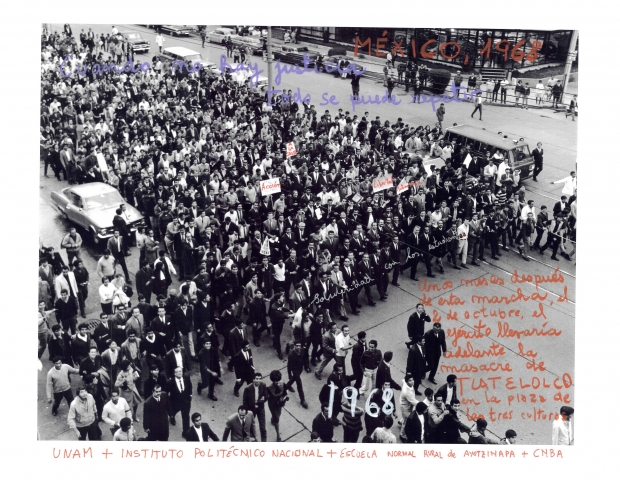 MÉXICO, 1968
Cuando no hay justicia
todo se puede repetir
Acción
Libertad
Solidaridad con los estudiantes
Unos meses después
de esta marcha, el
2 de octubre, el
ejército llevaría
adelante la
masacre de
TLATELOLCO
en la plaza de
las tres culturas
1968
UNAM + INSTITUTO POLITÉCNICO NACIONAL + ESCUELA NORMAL RURAL de AYOTZINAPA + CNBA